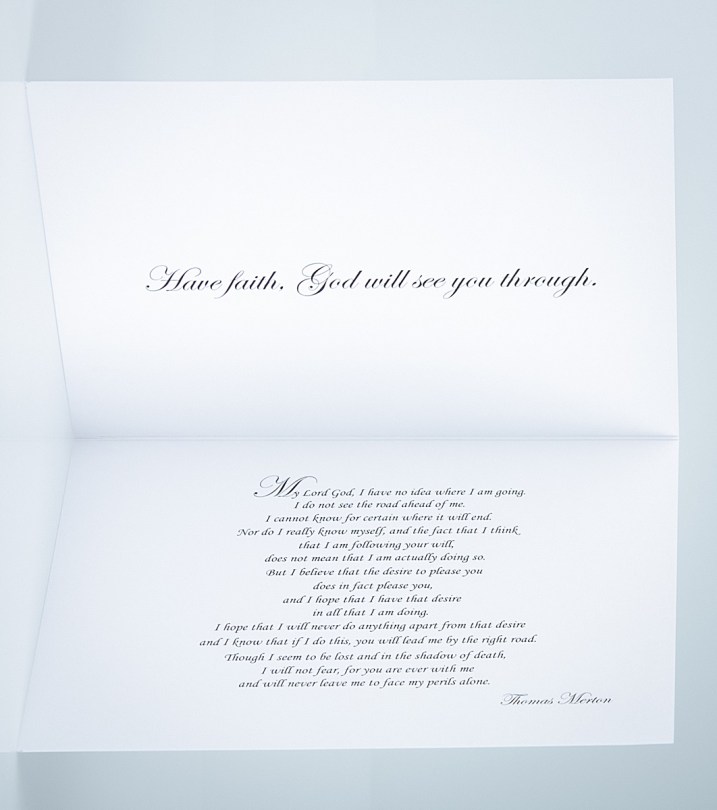 Have faith. God will see you through.
My Lord God, I have no idea where I am going.
I do not see the road ahead of me.
I cannot know for certain where it will end.
Nor do I really know myself, and the fact that I think
that I am following your will,
does not mean that I am actually doing so.
But I believe that the desire to please you
does in fact please you,
and I hope that I have that desire
in all that I am doing.
I hope that I will never do anything apart from that desire
and I know that if I do this, you will lead me by the right road.
Though I seem to be lost and in the shadow of death,
I will not fear, for you are ever with me
and will never leave me to face my perils alone.
Thomas Merton